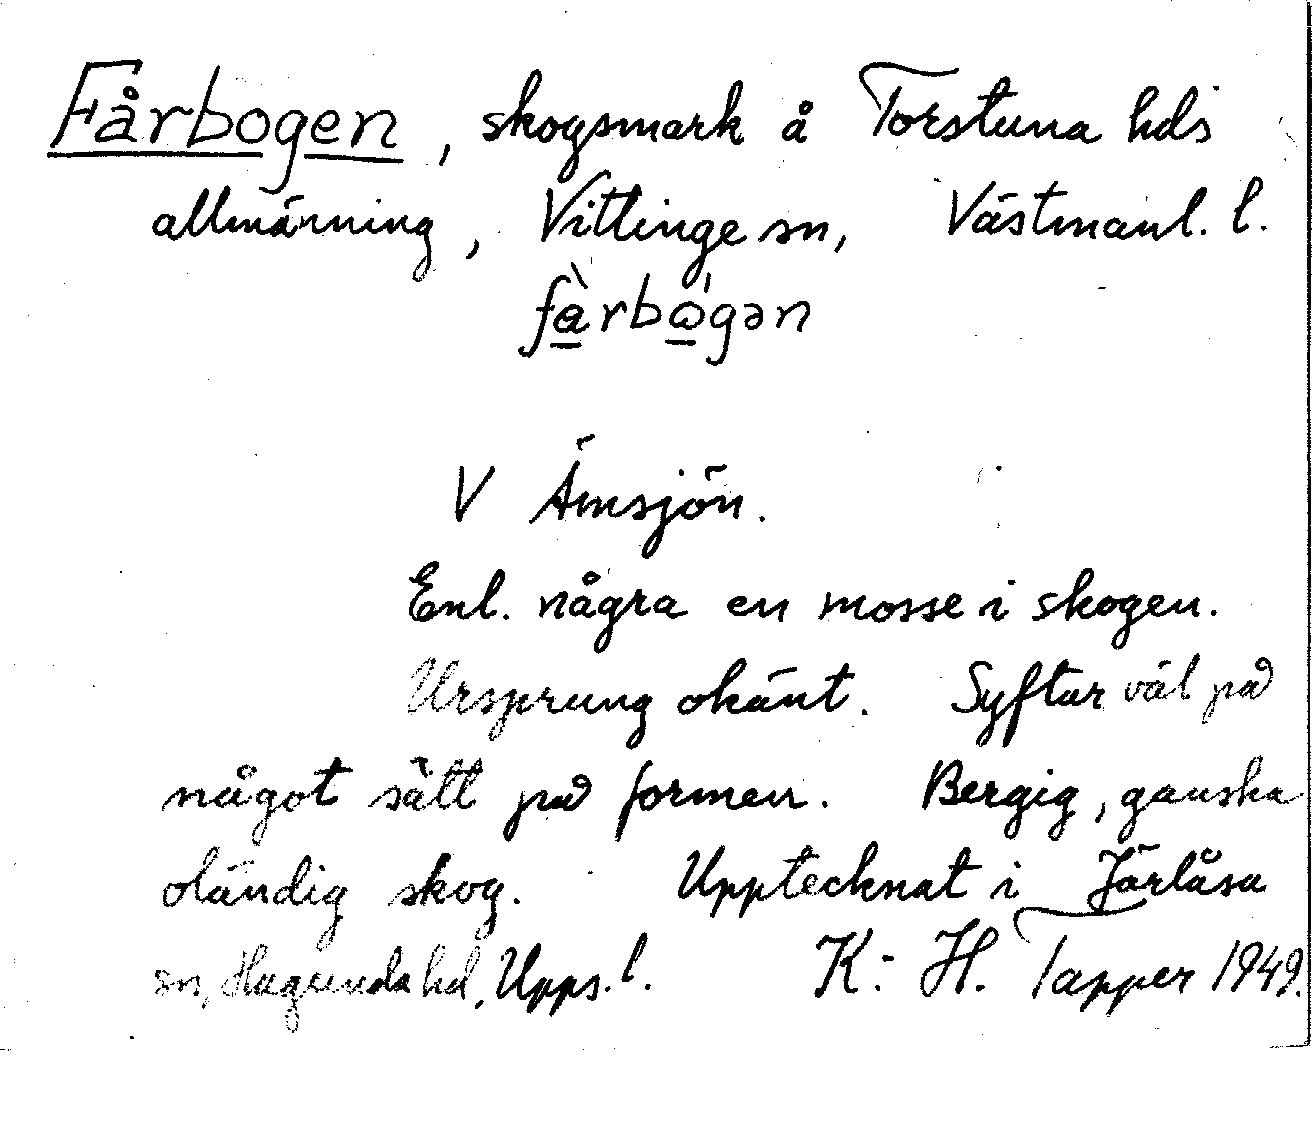 Fårbogen, skogsmark å Torstuna hds
allmänning, Vittinge sn, Västmanl. l.
V Ämsjön.
Enl. några en mosse i skogen.
Ursprung okänt. Syftar väl på
något sätt på formen. Bergig, ganska
oländig skog. Upptecknat i Järlåsa
sn, Hagunda hd, Upps. l. K: H. Tapper 1949.